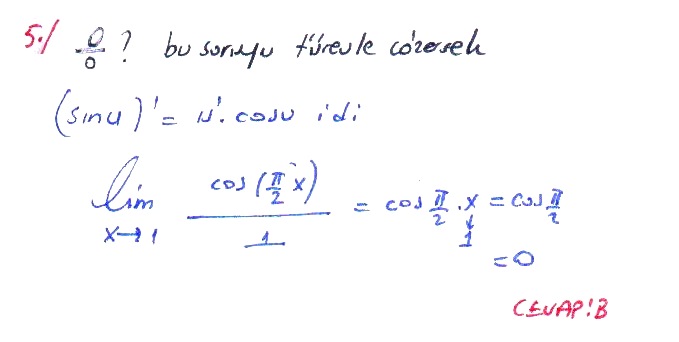 5./ 0/0 ? bu soruyu türevle çözersek
(sinu)' = u'. cosu idi
lim x→1 cos(π/2 x) / 1 = cos π/2 . x = cos π/2
1
= 0
CEVAP: B